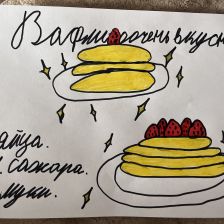 Вафли очень вкусн
яйца.
сахара.
муки.